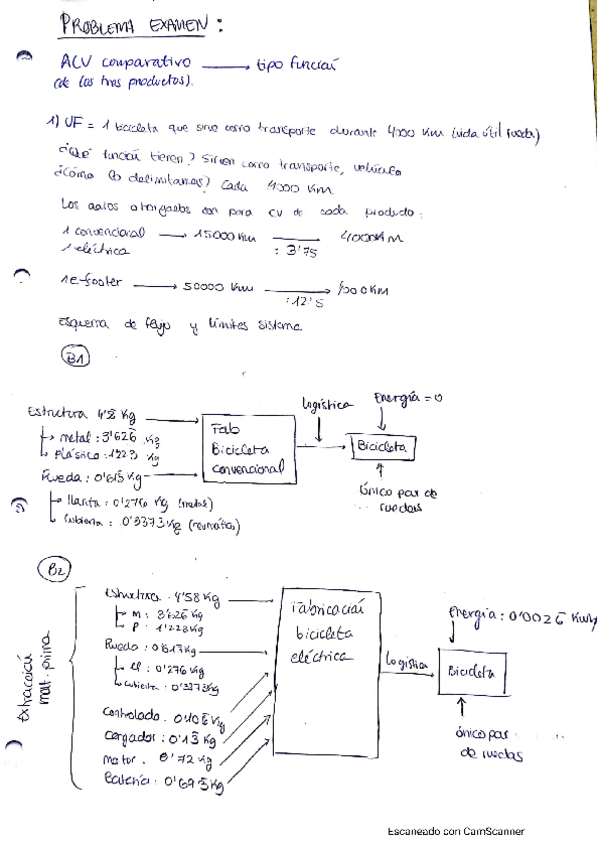 PROBLEMA EXAMEN :
ACV comparativo → tipo función
(de los tres productos).
1) UF = 1 bicicleta que sirve como transporte durante 4000 Km (vida útil rueda)
¿Qué función tienen? Sirven como transporte, vehículo
¿Cómo lo delimitamos? Cada 4000 Km
Los datos otorgados son para CV de cada producto:
1 convencional → 15000 Km 4000 Km
1 eléctrica : 3'75
1 e-footer → 50000 Km → 4000 Km
: 12'5
Esquema de flujo y límites sistema
B1
Estructura 4'8 Kg
metal : 3'626 Kg
plástico : 1'223 Kg
Rueda : 0'615 Kg
llanta : 0'276 Kg (metal)
cubierta : 0'3373 Kg (neumático)
Fab
Bicicleta
convencional
logística
Energía = 0
Bicicleta
único par de
ruedas
B2
Extracción
mat. prima
Estructura : 4'58 Kg
M : 3'626 Kg
P : 1'223 Kg
Rueda : 0'617 Kg
ll : 0'276 Kg
cubierta : 0'3373 Kg
Controlado. 0'106 Kg
Cargador : 0'13 Kg
motor . 0'72 Kg
Batería : 0'693 Kg
Fabricación
bicicleta
eléctrica
logística
Energía : 0'0026 Kwh
Bicicleta
único par
de ruedas
Escaneado con CamScanner